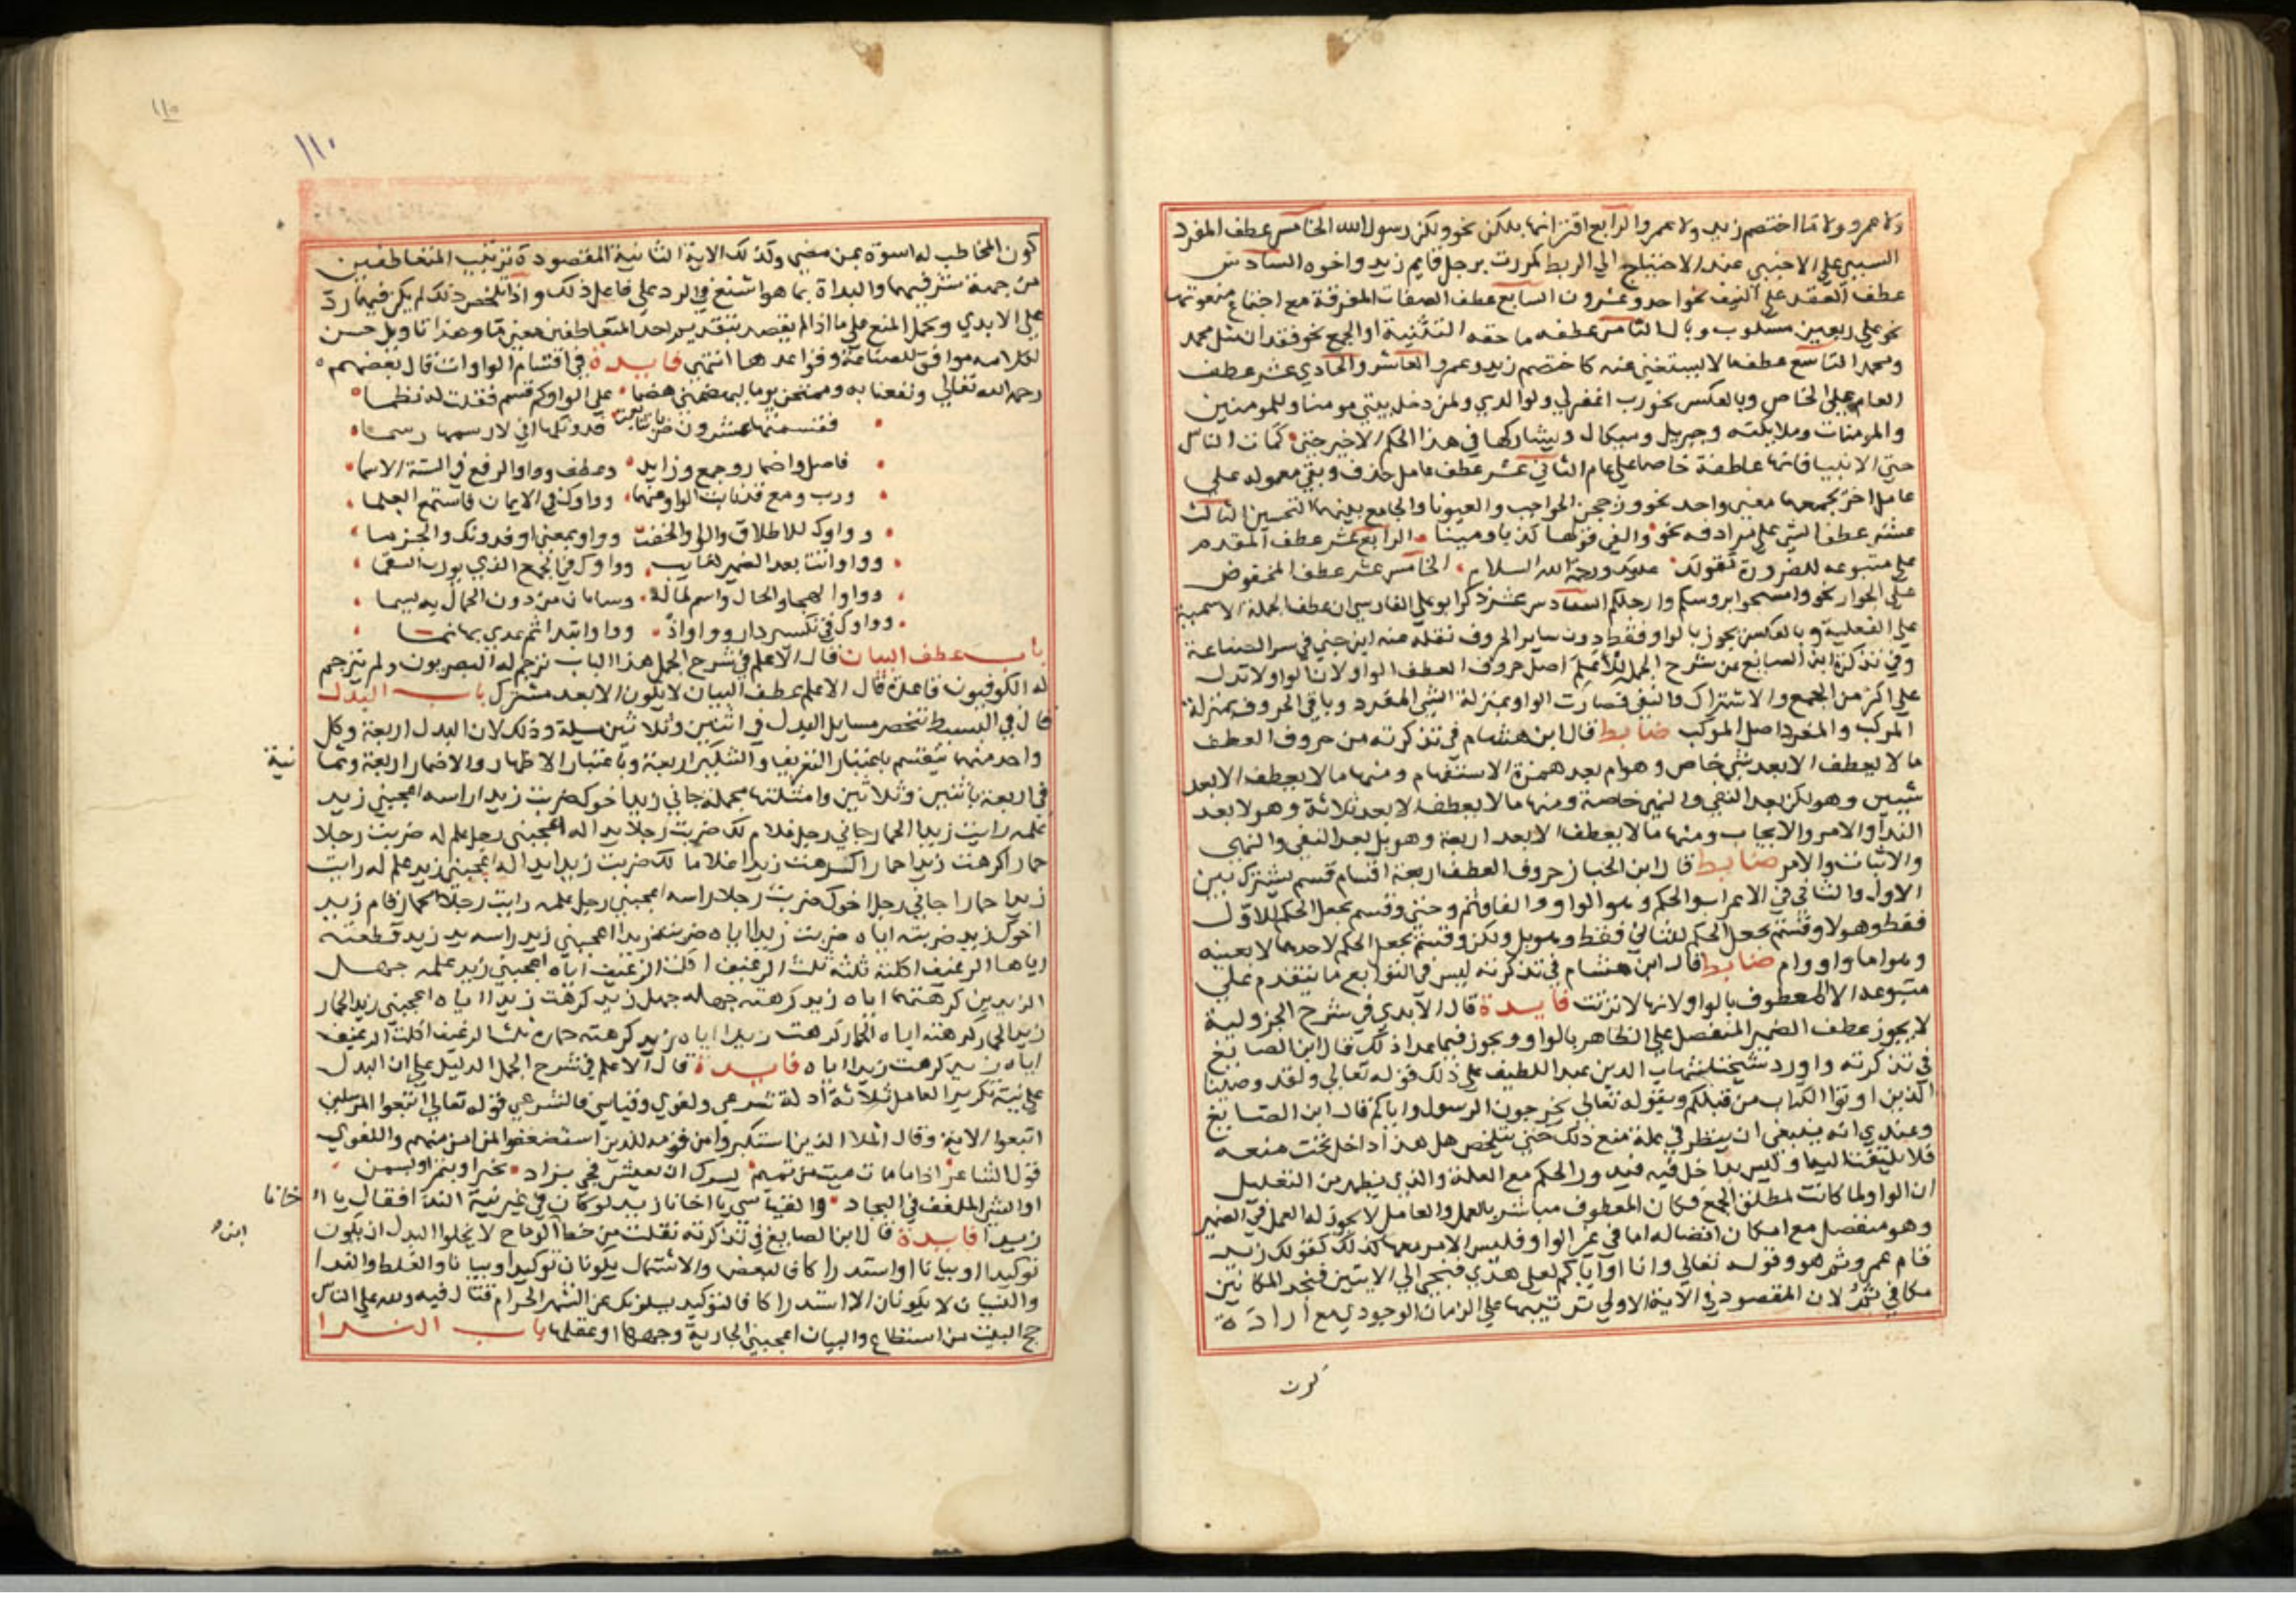 ولا عمرو ولا ما اختصم زيد ولا عمرو الرابع اقترانها بلكن نحو ولكن رسول الله الخامس عطف المفرد
السببي على الاجنبي عند الاحتياج الي الربط كمررت برجل قايم زيد واخوه السادس
عطف العقد على النيف نحو احد وعشرون السابع عطف الصفات المفرقة مع اجتماع منعوتها
نحو على ربعين مسلوب وبال الثامن عطف ما حقه التثنية او الجمع نحو فقدان مثل محمد
ومحمد التاسع عطف ما لا يستغنى عنه كاختصم زيد وعمرو العاشر والحادي عشر عطف
العام على الخاص وبالعكس نحو رب اغفر لي ولوالدي ولمن دخل بيتي مومنا وللمومنين
والمومنات وملايكته وجبريل وميكال ويشاركها في هذا الحكم الاخير حتى كمات الناس
حتى الانبيا فانها عاطفة خاصا على عام الثاني عشر عطف عامل حذف وبقي معموله على
عامل اخر يجمعهما معنى واحد نحو وزججن الحواجب والعيونا والجامع بينهما التحسين الثالث
عشر عطف الشي على مرادفه نحو والفي قولها كذبا ومينا والرابع عشر عطف المقدم
على متبوعه للضرورة كقولك عليك ورحمة الله السلام الخامس عشر عطف المخفوض
على الجوار نحو وامسحوا بروسكم وارجلكم السادس عشر ذكر ابو علي الفارسي ان عطف الجملة الاسمية
على الفعلية وبالعكس يجوز بالواو فقط دون ساير الحروف نقله عنه ابن جني في سر الصناعة
وفي تذكرة ابن الصايغ عن شرح الجمل للاعلم اصل حروف العطف الواو لان الواو لا تدل
على اكثر من الجمع والاشتراك فصارت الواو بمنزلة الشي المفرد وباقي الحروف بمنزلة
المركب والمفرد اصل المركب ضابط قال ابن هشام في تذكرته من حروف العطف
ما لا يعطف الا بعد شي خاص وهو ام بعد همزة الاستفهام ومنها ما لا يعطف الا بعد
شيين وهو لكن بعد النفي والنهي خاصة ومنها ما لا يعطف الا بعد ثلاثة وهو لا بعد
الندا والامر والايجاب ومنها ما لا يعطف الا بعد اربعة وهو بل بعد النفي والنهي
والاثبات والامر ضابط قال ابن الخباز حروف العطف اربعة اقسام قسم يشترك بين
الاول والثاني في الاعراب والحكم وهو الواو والفا وثم وحتى وقسم يجعل الحكم للاول
فقط وهو لا وقسم يجعل الحكم للثاني فقط وهو بل ولكن وقسم يجعل الحكم لاحدهما لا بعينه
وهو اما واو وام ضابط قال ابن هشام في تذكرته ليس في التوابع ما يتقدم على
متبوعه الا المعطوف بالواو لانها لا ترتب فايدة قال الابدي في شرح الجزولية
لا يجوز عطف الضمير المنفصل على الظاهر بالواو ويجوز فيما عدا ذلك قال ابن الصايغ
في تذكرته واورد شيخنا شهاب الدين عبد اللطيف على ذلك قوله تعالى ولقد وصينا
الذين اوتوا الكتاب من قبلكم وقوله تعالى يخرجون الرسول واياكم قال ابن الصايغ
وعندي انه ينبغي ان ينظر في علة منع ذلك حتى يتلخص هل هذا داخل تحت منعه
فلا يلتفت اليها وليس بداخل فيه فيدور الحكم مع العلة والذي يظهر من التعليل
ان الواو لما كانت لمطلق الجمع فكان المعطوف مباشر بالعمل والعامل لا يجوز له العمل في الضمير
وهو منفصل مع امكان اتصاله اما في غير الواو فليس الامر معها كذلك كقولك زيد
قام عمرو ثم هو وقوله تعالى وانا او اياكم لعلى هدى فنجي الي الايتين فنجد المكانين
مكاني ثم لان المقصود في الاية الاولى ترتيبها على الزمان الوجودي مع ارادة
كون
١١٥
١١٠
كون المخاطب له اسوة بمن مضى وكذلك الاية الثانية المقصودة ترتيب المتعاطفين
من جهة شرفهما والبداة بما هو اشنع في الرد على فاعل ذلك واذا تلخص ذلك لم يكن فيها رد
على الابدي ويحمل المنع على ما اذا لم يقصد بتقديم احد المتعاطفين معنى ما وهذا تاويل حسن
لكلامه موافق للصناعة وقواعدها انتهى فايدة في اقسام الواوات قال بعضهم
رحمه الله تعالى ونفعنا به وممتحن يوما ليهضمني هضما على الواو كم قسم فقلت له نظما
فقسمتها عشرون ضربا تتابعت فدونكها اني لارسمها رسما
فاصل واضمار وجمع وزايد وعطف وواو الرفع في الستة الاسما
ورب ومع قد نابت الواو عنهما وواوك في الايمان فاستمع العلما
وواوك للاطلاق والواو الحقت وواو بمعنى او فدونك والحزما
وواو اتت بعد الضمير لغايب وواوك في الجمع الذي يورث السقما
وواو الهجا والحال واسم لما له وسامان من دون الجمال به يسما
وواوك في تكسير دار وواو اذ وواو ابتدا ثم عدي بها تما
باب عطف البيان قال الاعلم في شرح الجمل هذا الباب ترجم له البصريون ولم يترجم
له الكوفيون قاعدة قال الاعلم عطف البيان لا يكون الا بعد مشترك باب البدل
قال في البسيط تنحصر مسايل البدل في اثنين وثلاثين مسيلة وذلك لان البدل اربعة وكل
واحد منها ينقسم باعتبار التعريف والتنكير اربعة وباعتبار الاظهار والاضمار اربعة وثما
نية
في اربعة باثنين وثلاثين وامثلتها مجملة جاني زيد اخوك ضربت زيدا راسه اعجبني زيد
علمه رايت زيدا الحمار جاني رجل غلام لك ضربت رجلا يدا له اعجبني رجل علم له ضربت رجلا
حمارا كرهت زيدا حمارا كرهت زيدا غلاما لك ضربت زيدا يدا له اعجبني زيد علم له رايت
زيدا حمارا جاني رجل اخوك ضربت رجلا راسه اعجبني رجل علمه رايت رجلا الحمار قام زيد
اخوك زيد ضربته اياه ضربت زيدا اياه ضربت زيدا اعجبني زيد راسه يد زيد قطعته
اياها الرغيف اكلته ثلثه ثلث الرغيف اكلت الرغيف اياه اعجبني زيد علمه جهل
الزيدين كرهتهما اياه زيد كرهته جهله جهل زيد كرهت زيدا اياه اعجبني زيد الحمار
زيد الحمار كرهته اياه الحمار كرهت زيدا اياه زيد كرهته حماره ثلث الرغيف اكلت الرغيف
اياه زيد كرهت زيدا اياه فايدة قال الاعلم في شرح الجمل الدليل على ان البدل
على نية تكرير العامل ثلاثة ادلة شرعي ولغوي وقياسي فالشرعي قوله تعالى اتبعوا المرسلين
اتبعوا الاية وقال الملا الذين استكبروا من قومه للذين استضعفوا لمن امن منهم واللغوي
قول الشاعر اذا ما مات ميت من تميم فسرك ان يعيش فجي بزاد بخبز او بتمر او بسمن
او الشي الملفف في البجاد والقياسي يا اخانا زيد لو كان في غير نية الندا لقال يا ا
خانا
زيدا فايدة قال ابن الصايغ في تذكرته نقلت من خط الرماح لا يخلوا البدل ان يكون
توكيدا او بيانا او استدراكا فالبعض والاشتمال يكونان توكيدا وبيانا والغلط والبدا
والنسيان لا يكونان الا استدراكا فالتوكيد يسلونك عن الشهر الحرام قتال فيه ولله على الناس
حج البيت من استطاع والبيان اعجبتني الجارية وجهها او عقلها باب الندا